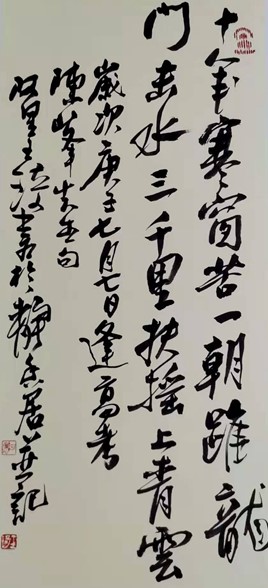 十年寒窗苦一朝跃龍
門击水三千里扶摇上青雲
歲次庚子七月七日逢高考
陳峰先生句
王法書於静居並記